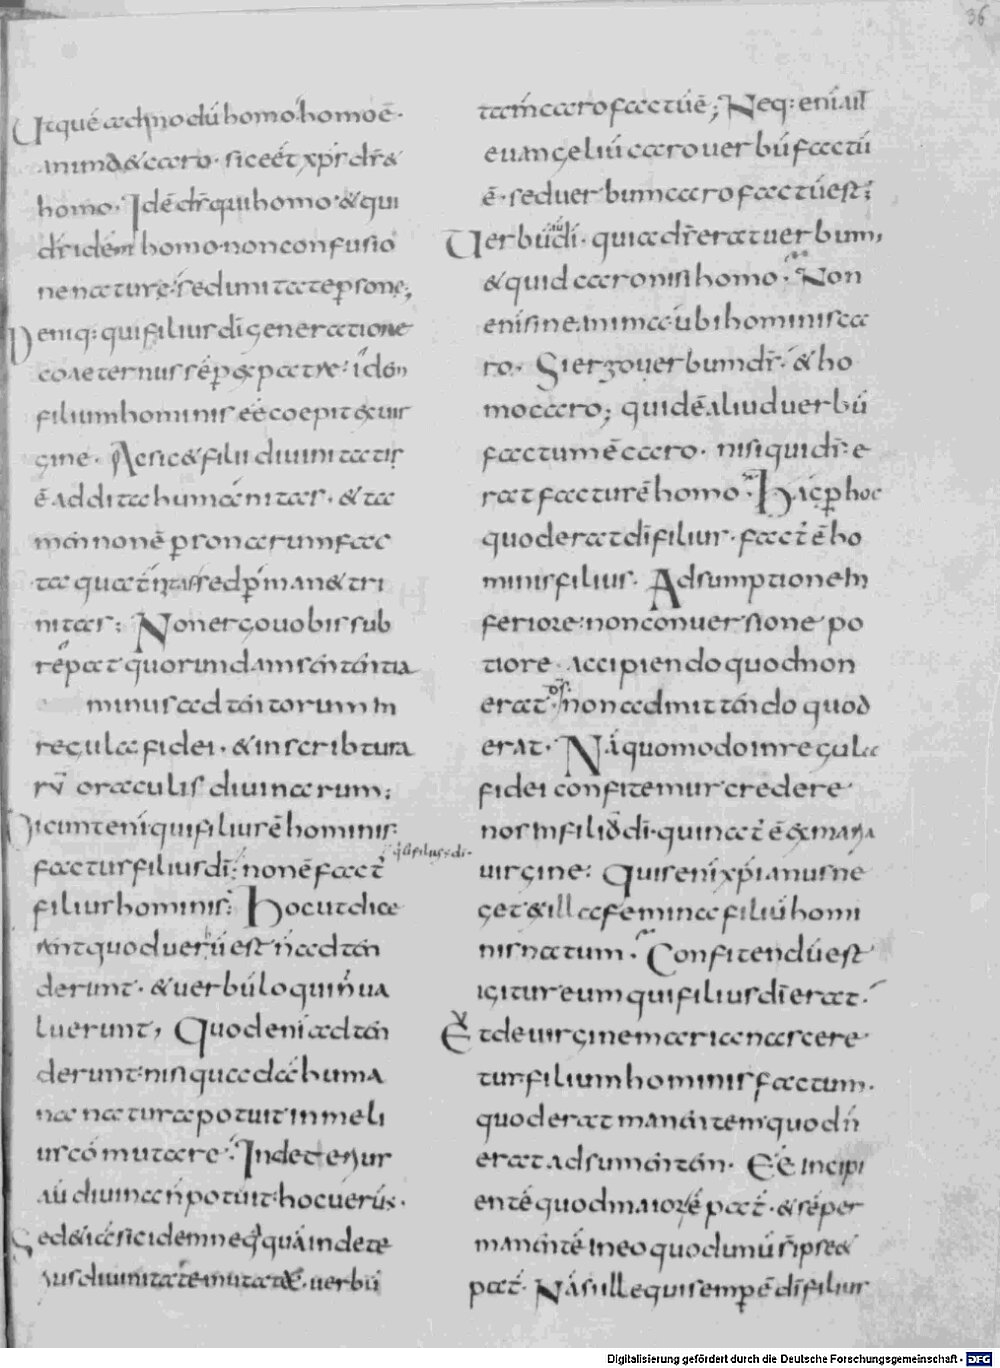 36
Utqué adḿodū homo homo ē·
anima & caro· sic e&́ xp̄s d̄s &
homo· Idē d̄s qui homo· & qui
d̄s idem homo· non confusio
ne naturę· sed unitate p̱sonę;
Deniq: qui filius dī generatione
coaeternus sēp̱ ex patre· idem
filium hominis eē coepit ex uir
gine· Ac sic & filii diuinitatis
ē addita humanitas· & ta
men non ē p̱sonarum fac
ta quat̄nitas sed p̱man& tri
nitas: Non ergo uobis sub
rēpat quorundam sententia
minus adtentorum in
regula fidei· & in scribtura
rū oraculis diuinarum;
Dicunt enī qui filius ē hominis
factus filius dī: non ē fact̄
q̄si filius dī·
filius hominis: Hoc ut dice
rent quod uerū est n̄ adten
derunt· & uerbū loqui n̄ ua
luerunt, Quod enī adten
derunt· nisi quad ā huma
na natura potuit in meli
us cōmutare: In deterius
aū diuina n̄ potuit· hoc uerū·
Sed & iā sic idem neq quā in dete
rius diuinitate mutata· uerbū
tam̄ caro factū ē; Neq: enī ait
euangeliū caro uerbū factū
ē· sed uerbum caro factū est;
Uerbū aū dī· quia d̄s erat uerbum,
& quid caro nisi homo: Non
enī sine anima ubi hominis ca
ro· Si ergo uerbum d̄s· & ho
mo caro; quid ē aliud uerbū
factum ē caro· nisi qui d̄s e
rat factus ē homo· Hac p̱ hoc
quod erat dī filius· fact̄ ē ho
minis filius· Adsumptione in
feriore· non conuersione po
tiore· accipiendo quod non
erat· non admittendo quod
erat· Nā quomodo in regula
fidei confitemur credere
nos in filiū dī· qui nat̄ ē ex maria
uirgine: Quis enī xp̄ianus ne
get ex illa femina filiū homi
nis natum· Confitendū est
igitur eum qui filius dī erat·
Et de uirgine maria nascere
tur· filium hominis factum·
quod erat manentem quod n̄
erat adsumentem· Eē incipi
entē quod maior ē pat̄· & sēper
manentē in eo quod unū s̄ ipse &
pat̄· Nā si ille qui semp̱ ē dī filius
Digitalisierung gefördert durch die Deutsche Forschungsgemeinschaft - DFG